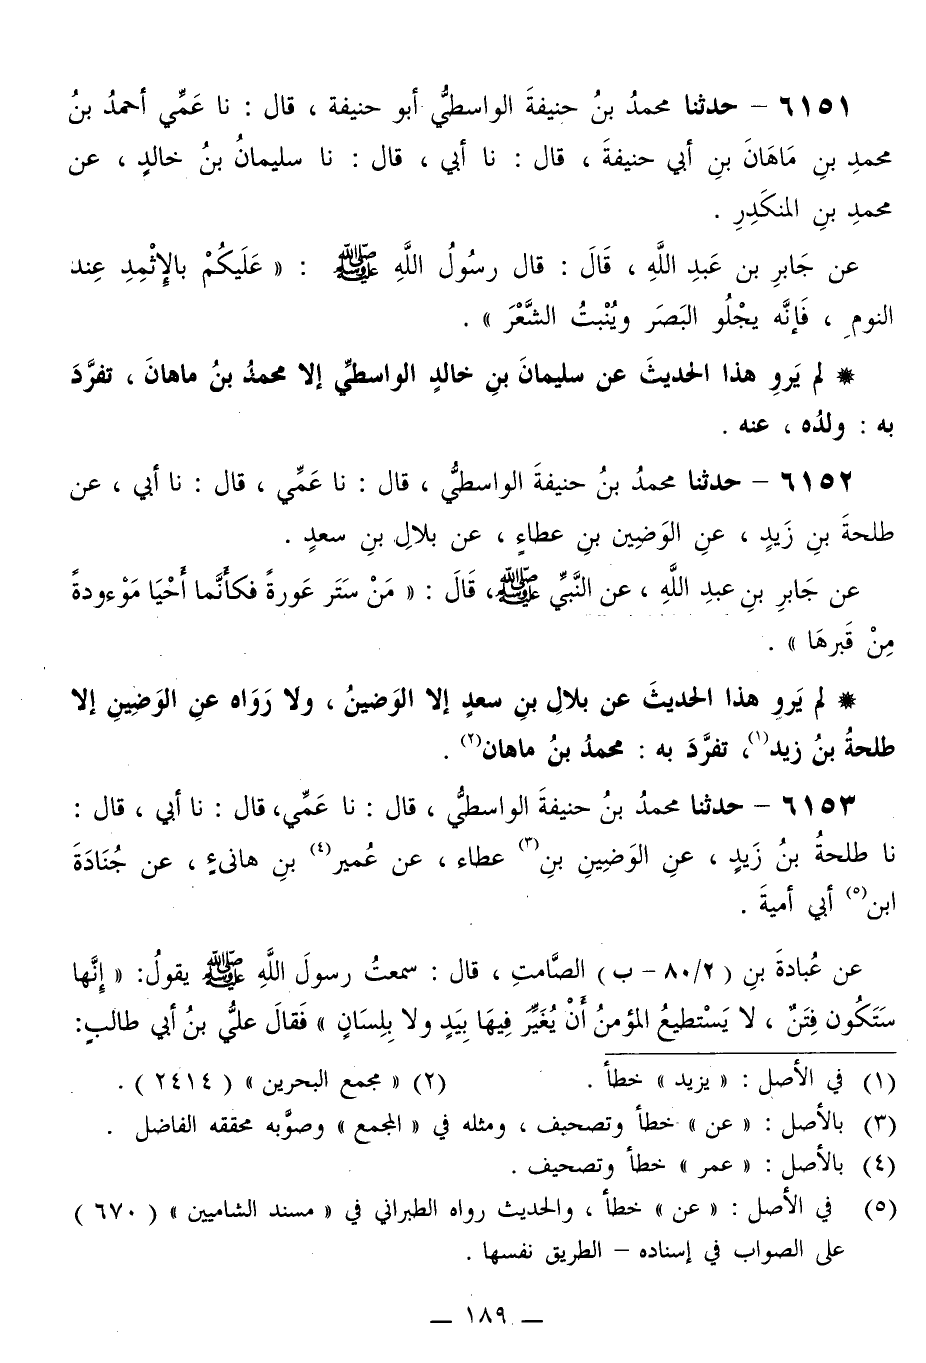 ٦١٥١ – حدثنا محمدُ بنُ حنيفةَ الواسطيُّ أبو حنيفة ، قال : نا عَمِّي أحمدُ بنُ
محمدِ بنِ مَاهَانَ بنِ أبي حنيفةَ ، قال : نا أبي ، قال : نا سليمانُ بنُ خالدٍ ، عن
محمدِ بنِ المنكَدِرِ .
عن جَابرِ بن عَبدِ اللَّهِ ، قَالَ : قال رسُولُ اللَّهِ ﷺ : « عَلَيكُمْ بالإِثْمِدِ عِندَ
النومِ ، فَإنَّه يجْلُو البَصَر ويُنْبتُ الشَّعْرَ » .
* لم يَروِ هذا الحديثَ عن سليمانَ بنِ خالدٍ الواسطيِّ إلا محمدُ بنُ ماهانَ ، تفرَّدَ
به : ولدُه ، عنه .
٦١٥٢ – حدثنا محمدُ بنُ حنيفةَ الواسطيُّ ، قال : نا عَمِّي ، قال : نا أبي ، عن
طلحةَ بنِ زَيدٍ ، عنِ الوَضِين بنِ عطاءٍ ، عن بلالِ بنِ سعدٍ .
عن جَابرِ بنِ عبدِ اللَّهِ ، عن النَّبيِّ ﷺ، قَالَ : « مَنْ سَتَر عَورةً فكأَنَّما أَحْيَا مَوْءودةً
مِنْ قَبرهَا » .
* لم يَروِ هذا الحديثَ عن بلالِ بنِ سعدٍ إلا الوَضينُ ، ولا رَوَاه عنِ الوَضِينِ إلا
طلحةُ بنُ زيد(١)، تفرَّدَ به : محمدُ بنُ ماهان(٢) .
٦١٥٣ – حدثنا محمدُ بنُ حنيفةَ الواسطيُّ ، قال : نا عَمِّي، قال : نا أبي ، قال :
نا طلحةُ بنُ زَيدٍ ، عنِ الوَضِينِ بنِ(٣) عطاء ، عن عُمير(٤) بنِ هانىءٍ ، عن جُنَادَةَ
ابن(٥) أبي أميةَ .
عن عُبادةَ بنِ ( ٨٠/٢ – ب ) الصَّامتِ ، قال : سمعتُ رسولَ اللَّهِ ﷺ يقولُ: « إنَّها
سَتَكُون فِتَنٌ ، لا يَسْتطيعُ المؤمنُ أَنْ يُغَيِّر فِيهَا بِيَدٍ ولا بلِسَانٍ » فَقالَ عليُّ بنُ أبي طالبٍ:
(١) في الأصل : « يزيد » خطأ . (٢) « مجمع البحرين » ( ٢٤١٤ ) .
(٣) بالأصل : « عن » خطأ وتصحيف ، ومثله في « المجمع » وصوَّبه محققه الفاضل .
(٤) بالأصل : « عمر » خطأ وتصحيف .
(٥) في الأصل : « عن » خطأ ، والحديث رواه الطبراني في « مسند الشاميين » ( ٦٧٠ )
على الصواب في إسناده – الطريق نفسها .
– ١٨٩ –